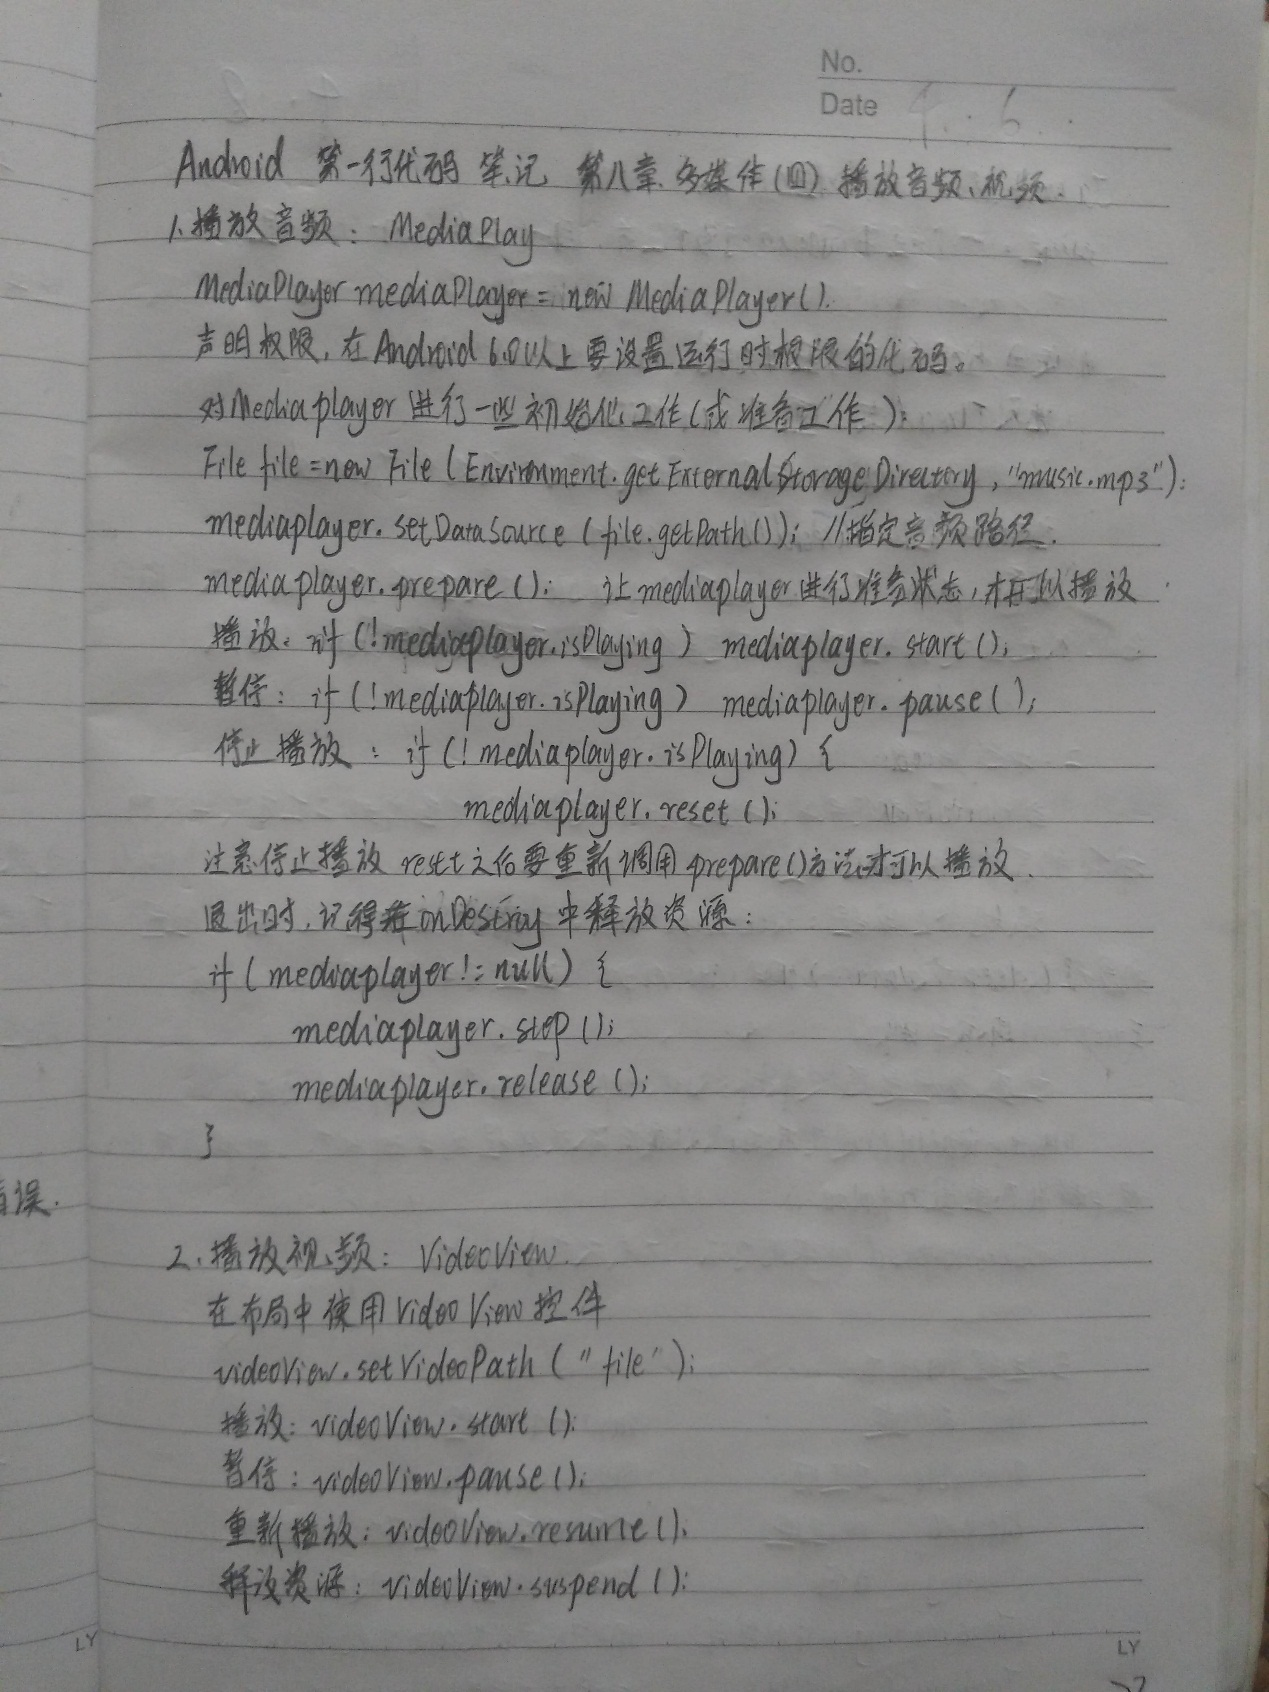 No.
Date 4.6
Android 第一行代码 笔记 第八章 多媒体(四) 播放音频、视频.
1.播放音频: MediaPlay
MediaPlayer mediaPlayer = new MediaPlayer().
声明权限,在Android 6.0以上要设置运行时权限的代码。
对Mediaplayer进行一些初始化工作(或准备工作):
File file = new File (Environment.getExternalStorageDirectory, "music.mp3");
mediaplayer.setDataSource (file.getPath()); //指定音频路径.
mediaplayer.prepare(); 让mediaplayer进行准备状态,才可以播放
播放: if (!mediaplayer.isPlaying) mediaplayer.start();
暂停: if (!mediaplayer.isPlaying) mediaplayer.pause();
停止播放: if (!mediaplayer.isPlaying) {
mediaplayer.reset();
注意停止播放 reset之后要重新调用prepare()方法才可以播放.
退出时,记得在onDestroy中释放资源:
if (mediaplayer != null) {
mediaplayer.stop();
mediaplayer.release();
}
误.
2.播放视频: VideoView.
在布局中使用VideoView控件
videoView.setVideoPath ("file");
播放: videoView.start();
暂停: videoView.pause();
重新播放: videoView.resume();
释放资源: videoView.suspend();
LY
LY